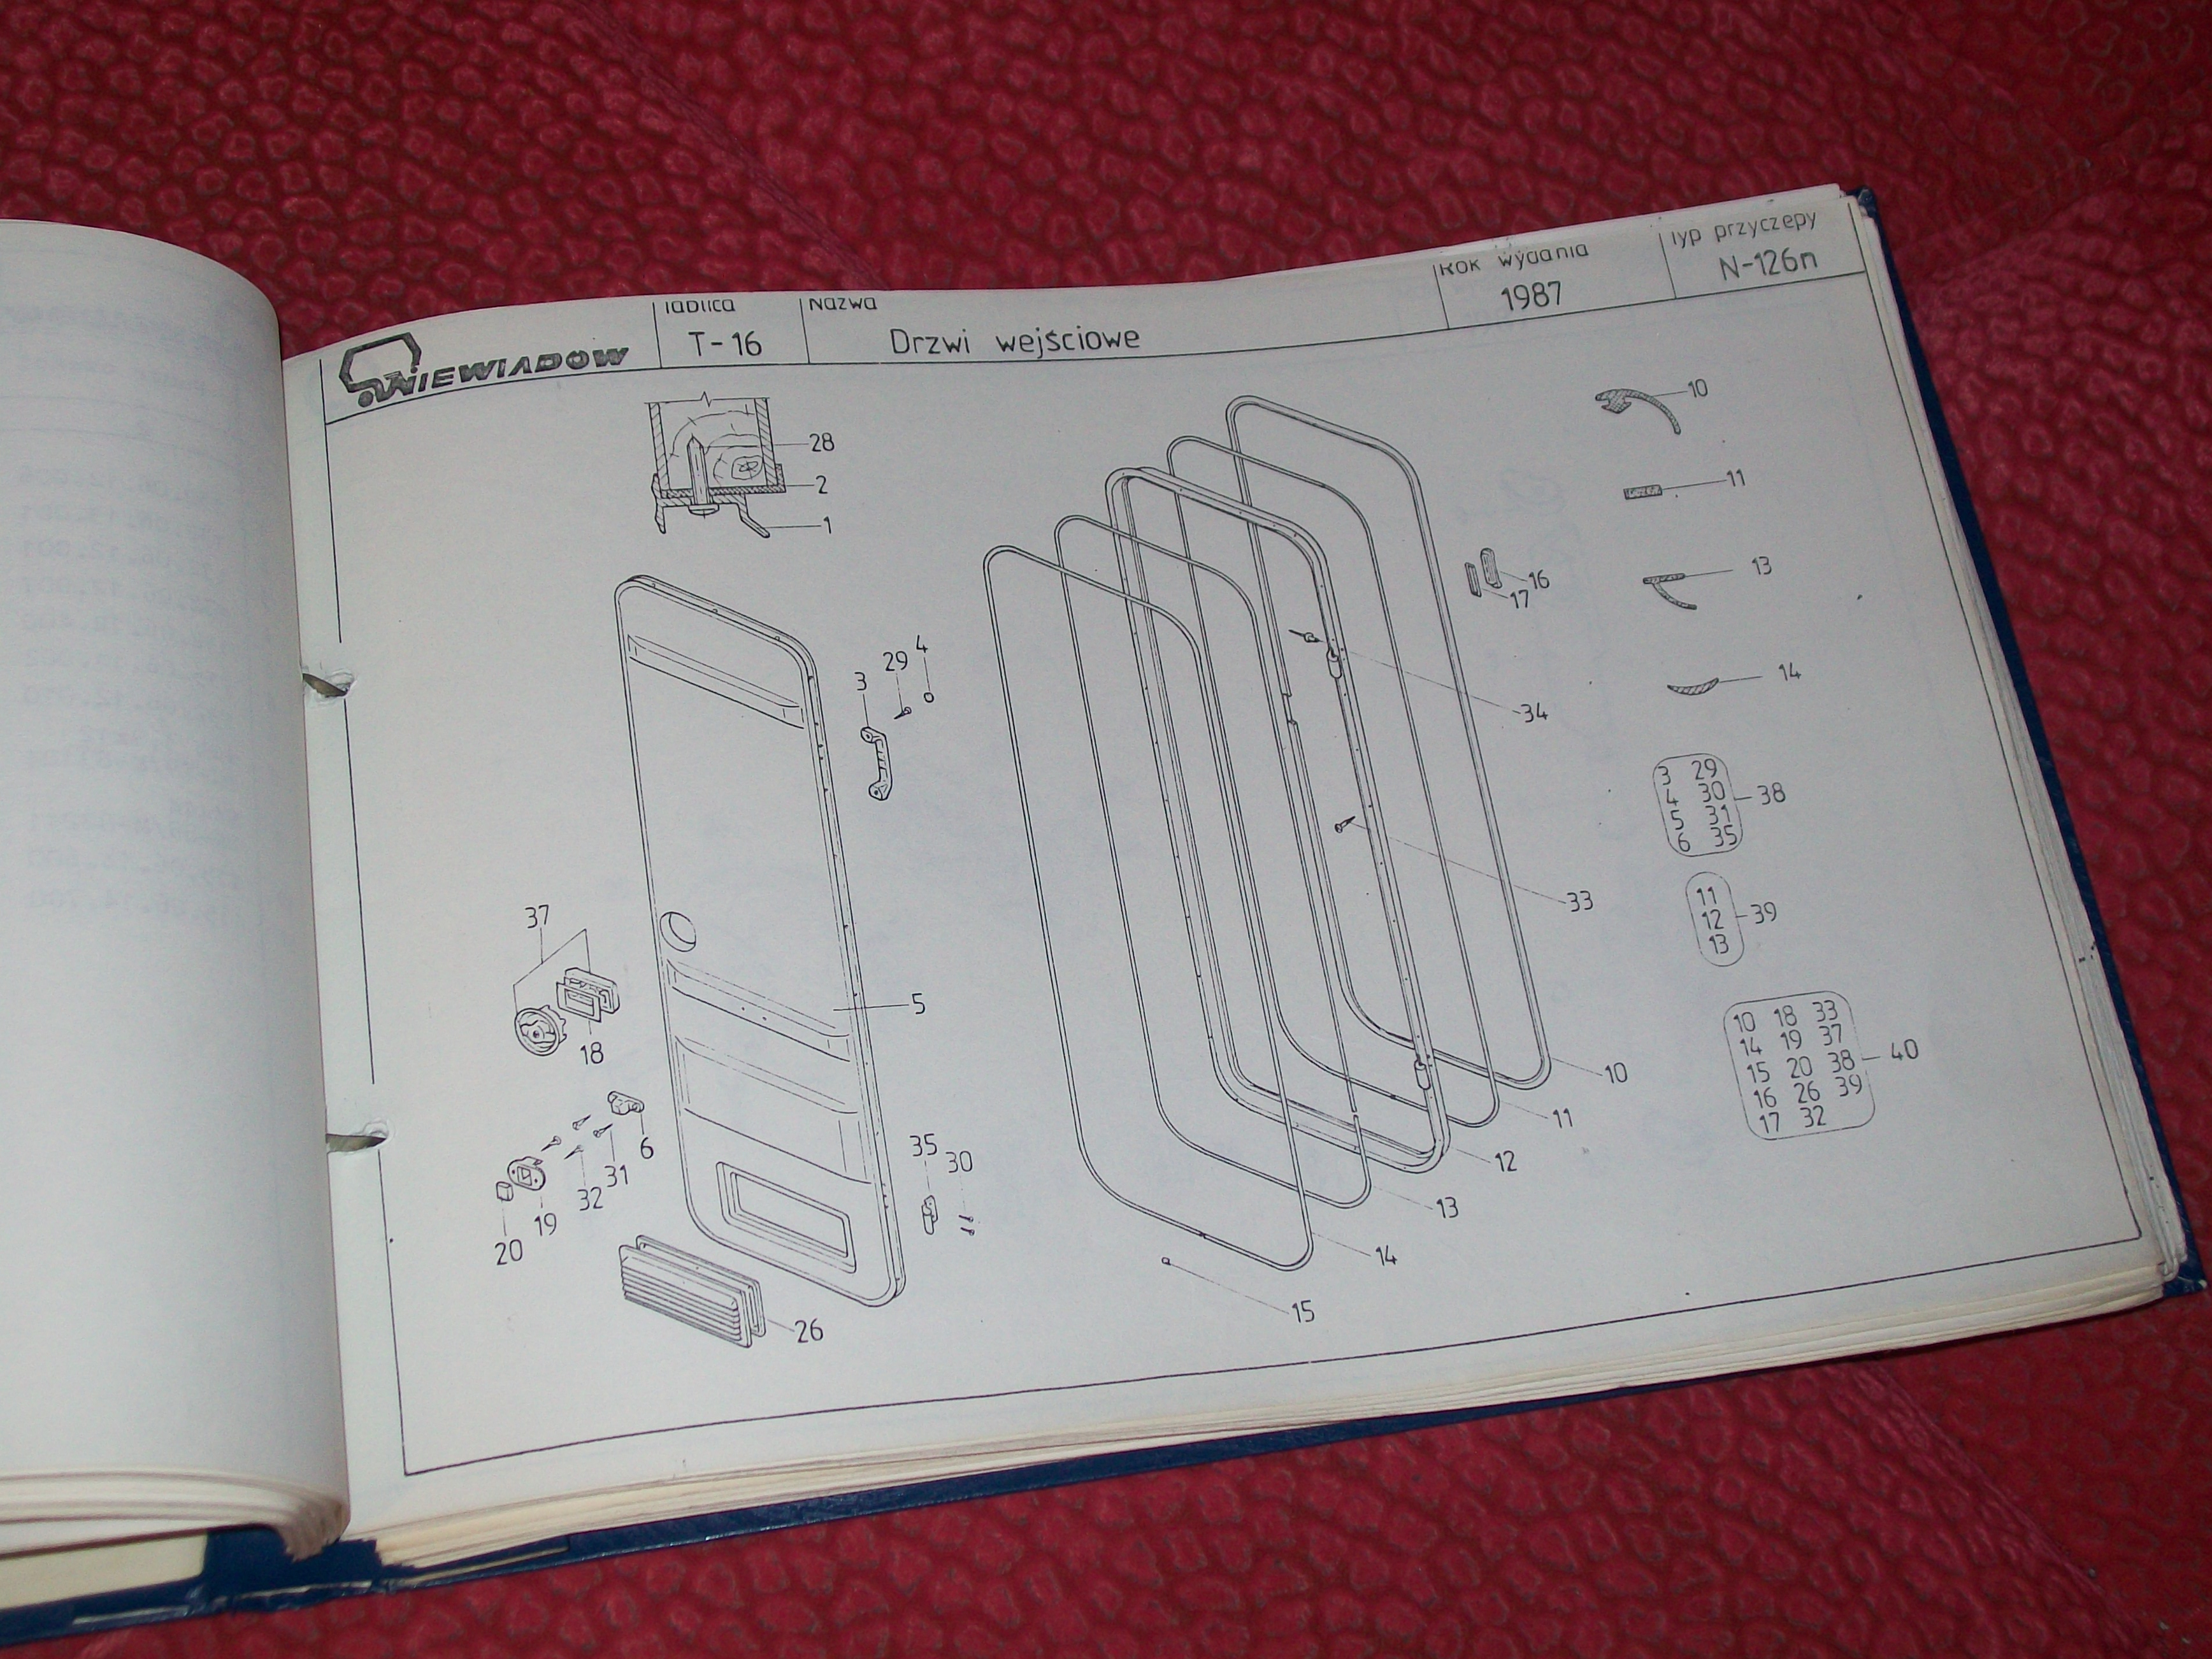 NIEWIADÓW
Tablica
T-16
Nazwa
Drzwi wejściowe
Rok wydania
1987
Typ przyczepy
N-126n
28
2
1
3
29
4
5
37
18
6
31
32
19
20
26
35
30
16
17
34
33
10
11
12
13
14
15
10
11
13
14
3 29
4 30
5 31
6 35
38
11
12
13
39
10 18 33
14 19 37
15 20 38
16 26 39
17 32
40